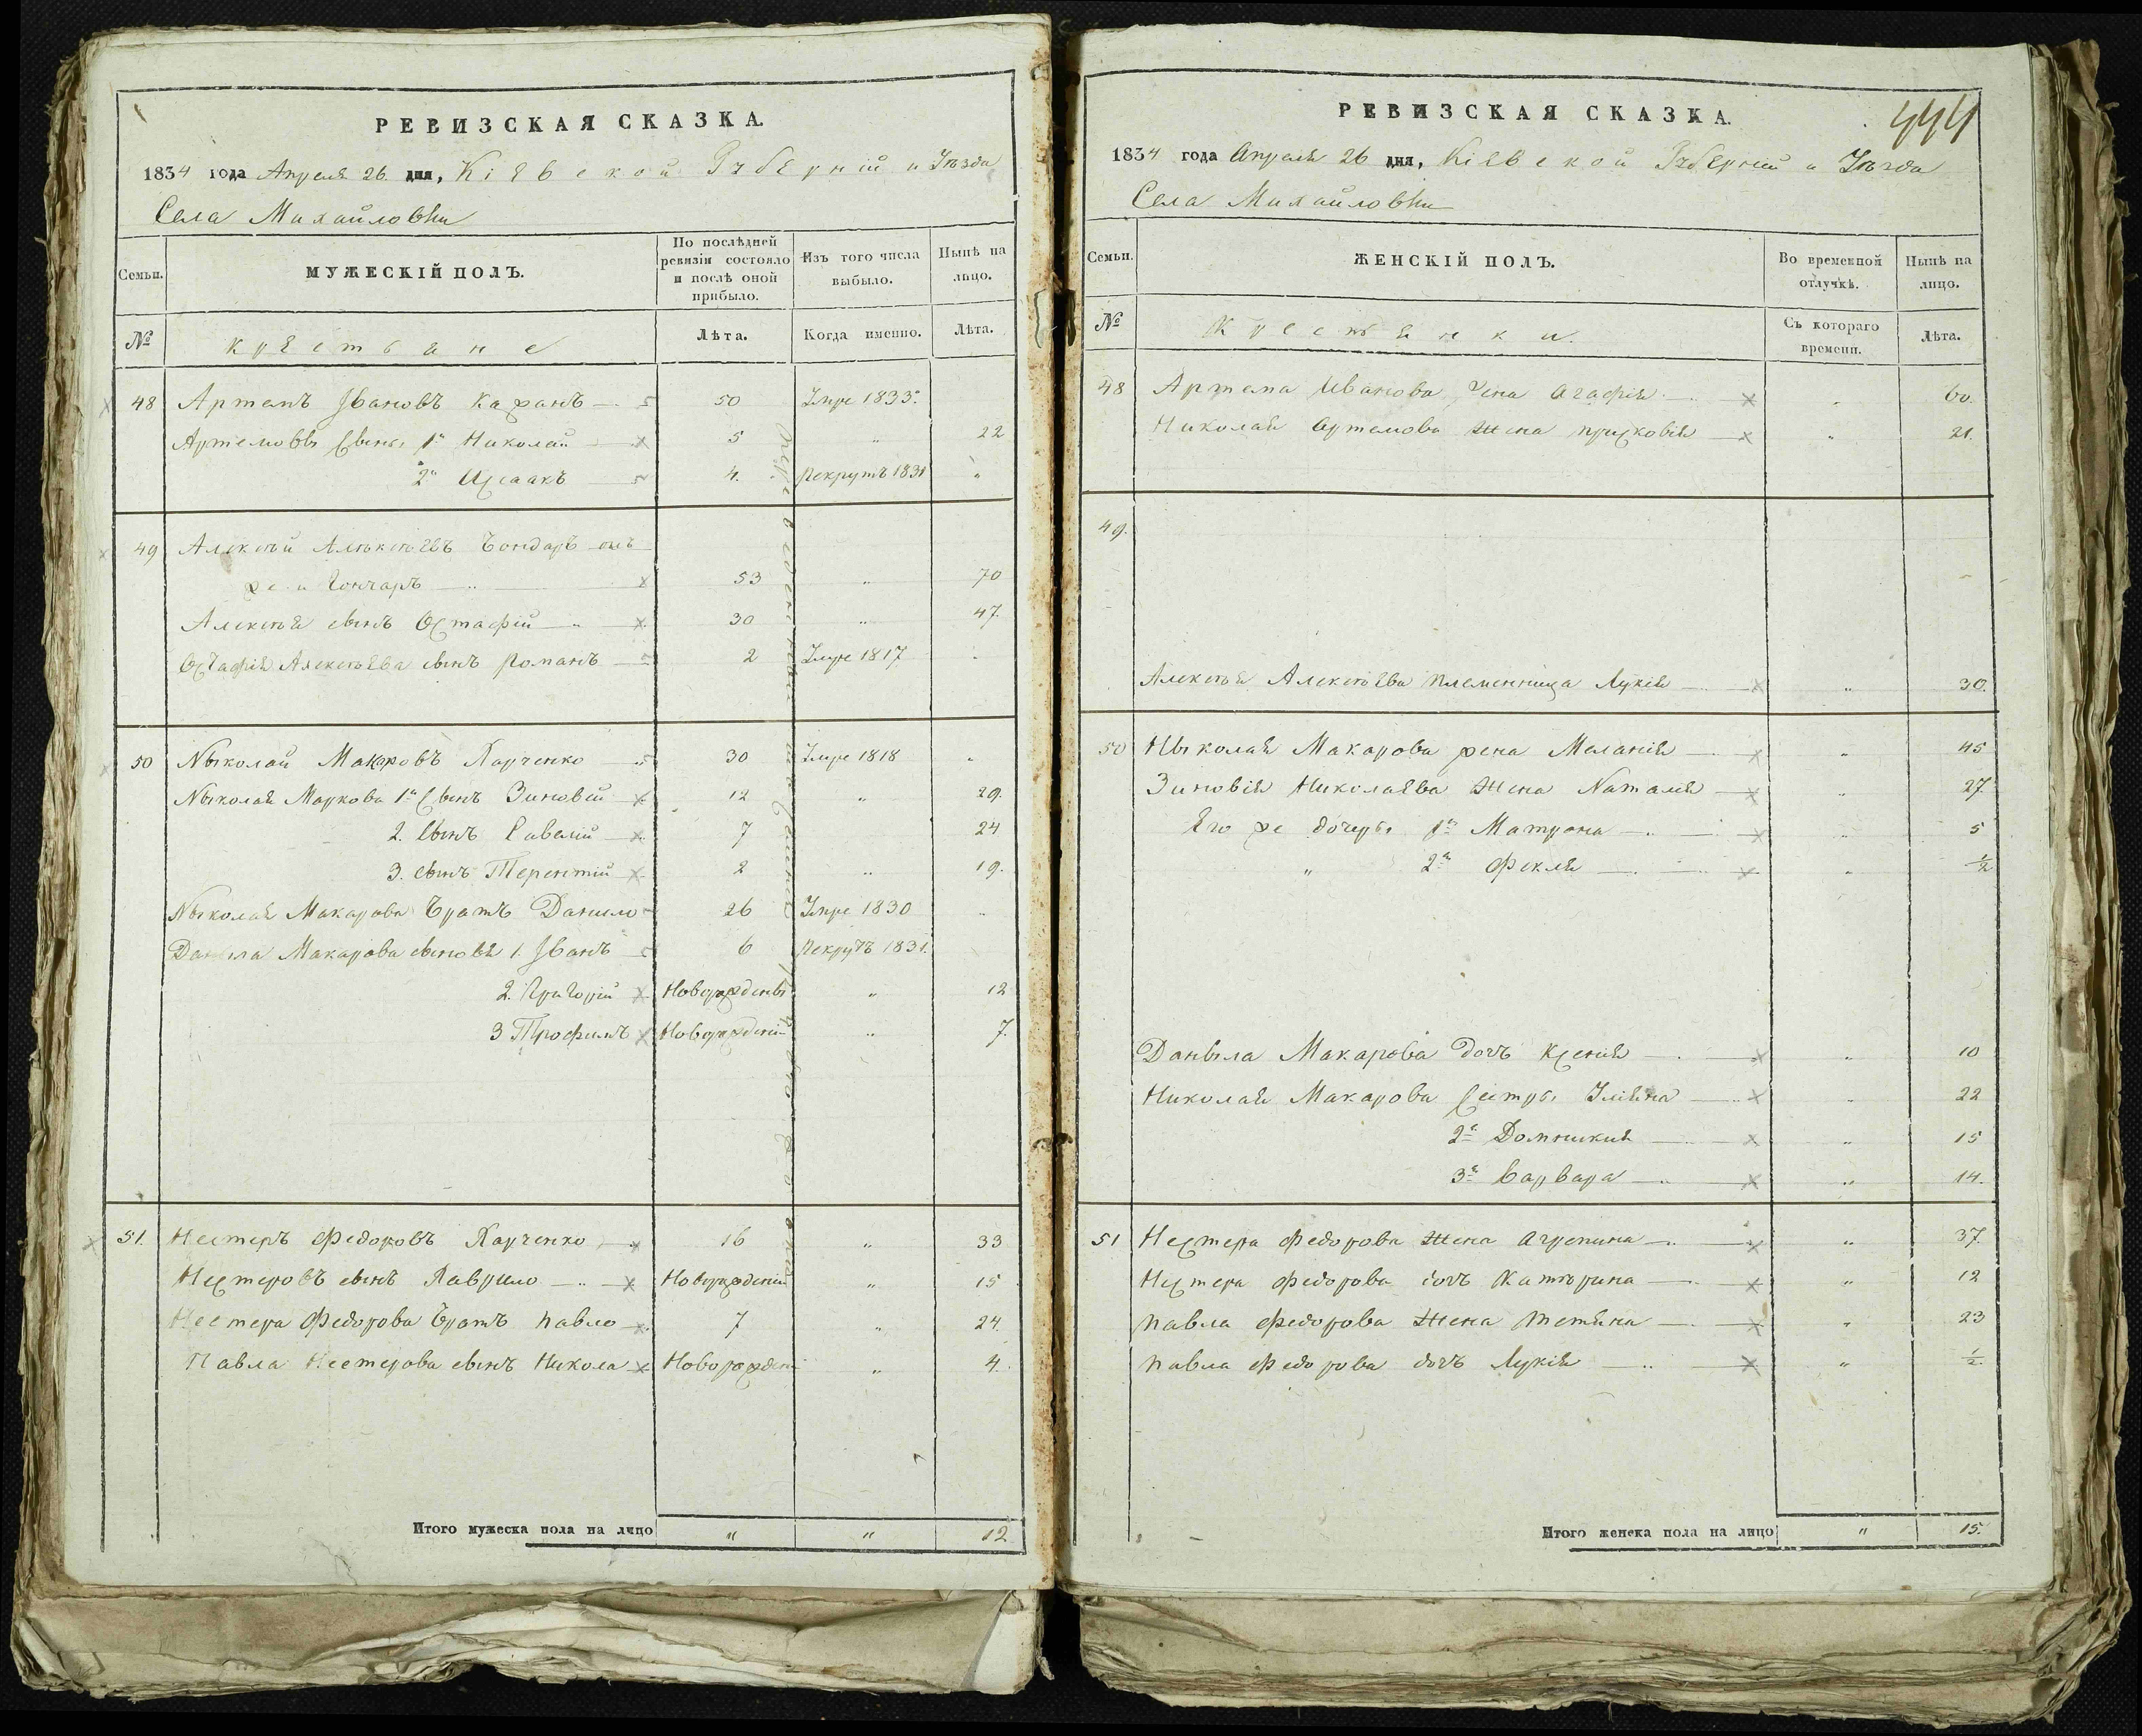 РЕВИЗСКАЯ СКАЗКА.
1834 года Апреля 26. дня, Кіевской Губерніи и Уѣзда
Села Михайловки
Семьи.
МУЖЕСКІЙ ПОЛЪ.
По послѣдней ревизіи состояло и послѣ оной прибыло.
Изъ того числа выбыло.
Нынѣ на лицо.
№
крестьяне
Лѣта.
Когда именно.
Лѣта.
48 Артемъ Івановъ 50 Умре 1833.
Артемовы сыны 1й Николай 5 " 22
2й Исаакъ 4. рекрутъ 1831 "
49 Алексѣй Алексѣевъ Бондарь онъ
же и Гончаръ 53 " 70
Алексѣя сынъ Остафій 30 " 47.
Остафія Алексѣева сынъ Романъ 2 Умре 1817
50 Николай Макаровъ Харченко 30 Умре 1818 "
Николая Маркова 1й Сынъ Зиновій 12 " 29.
2. Сынъ Савелій 7 24
3. сынъ Терентій 2 " 19.
Николая Макарова братъ Данило 26 Умре 1830 "
Данила Макарова сыновя 1. Іванъ 6 рекрутъ 1831.
2. Григорій Новорожденый " 12
3 Трофимъ Новорожденій " 7.
51. Нестеръ Федоровъ Харченко 16 " 33
Нестеровъ сынъ Гаврило Новорожденій " 15
Нестера Федорова братъ Павло 7 " 24.
Павла Нестерова сынъ Никола Новорожден " 4.
Итого мужеска пола на лицо " " 12
444
РЕВИЗСКАЯ СКАЗКА.
1834 года Апреля 26 дня, Кіевской Губерніи и Уѣзда
Села Михайловки
Семьи.
ЖЕНСКІЙ ПОЛЪ.
Во временной отлучкѣ.
Нынѣ на лицо.
№
Крестьянки.
Съ котораго времени.
Лѣта.
48 Артема Иванова жена Агафія " 60.
Николая Артемова жена прысковія " 21.
49.
Алексѣя Алексѣева племенница Лукія " 30.
50 Николая Макарова жена Меланія " 45
Зиновія Николаева жена Наталія " 27
Его же дочеры 1я Матрона " 5
" 2я Фекля " 1/2
Даныла Макарова дочъ Ксенія " 10
Николая Макарова Сестры Уліяна " 22
2я Домникія " 15
3я Варвара " 14.
51 Нестера Федорова жена Агрепина " 37.
Нестера Федорова дочъ Катерина " 12
Павла Федорова жена Тетяна " 23
Павла Федорова дочъ Лукія " 1/2.
Итого женска пола на лицо " 15.